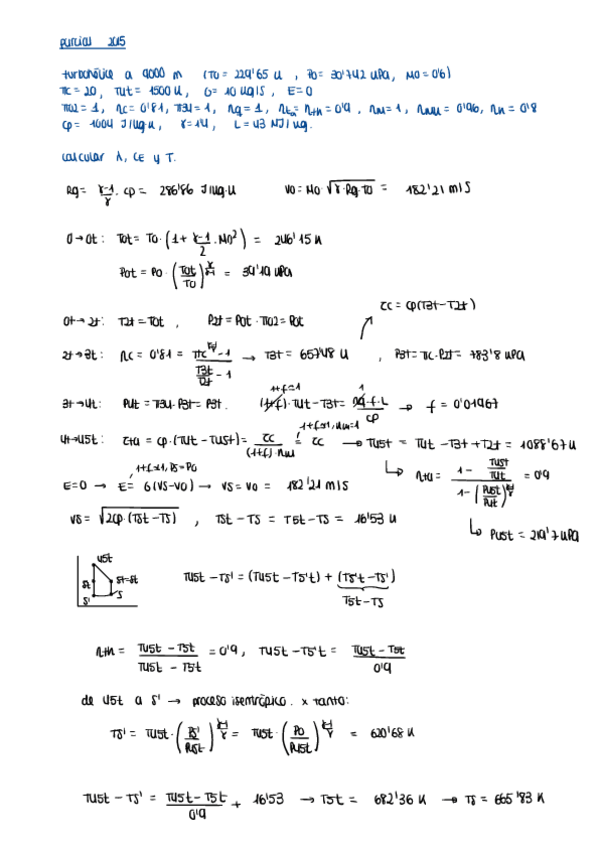 parcial 2015
turbohélice a 9000 m (T0 = 229'65 K , P0 = 30'742 kPa, M0 = 0'6)
πc = 20, T4t = 1500 K, G = 10 kg/s, E=0
π02 = 1, ηc = 0'81, π34 = 1, ηq = 1, ηta = ηth = 0'9, ηm = 1, ηmh = 0'96, ηh = 0'8
cp = 1004 J/kg·K, γ = 1'4, L = 43 MJ/kg.
calcular λ, CE y T.
Rg = γ-1/γ · cp = 286'86 J/kg·K V0 = M0·√γ·Rg·T0 = 182'21 m/s
0→0t: T0t = T0·(1 + γ-1/2 · M0²) = 246'15 K
P0t = P0·(T0t/T0)^γ/γ-1 = 39'19 kPa
τc = cp(T3t-T2t)
0t→2t: T2t = T0t , P2t = P0t·π02 = P0t
2t→3t: ηc = 0'81 = πc^γ-1/γ - 1 / T3t/T2t - 1 → T3t = 657'48 K , P3t = πc·P2t = 783'8 kPa
1+f≈1 1
3t→4t: P4t = π34·P3t = P3t. (1+f)·T4t-T3t = ηq·f·L/cp → f = 0'01967
1+f≈1, ηm=1
4t→45t: τta = cp·(T4t-T45t) = τc/(1+f)·ηm = τc → T45t = T4t-T3t+T2t = 1088'67 K
↳ ηta = 1 - T45t/T4t / 1-(P45t/P4t)^γ-1/γ = 0'9
1+f≈1, P5=P0
E=0 → E = G(V5-V0) → V5 = V0 = 182'21 m/s
↳ P45t = 219'7 kPa
V5 = √2cp·(T5t-T5) , T5t-T5 = T5t-T5 = 16'53 K
45t
5't 5t=5t
5' 5
T45t-T5' = (T45t-T5't) + (T5't-T5')
T5t-T5
ηth = T45t-T5t/T45t-T5't = 0'9, T45t-T5't = T45t-T5t/0'9
de 45t a 5' → proceso isentrópico. x tanto:
T5' = T45t·(P5'/P45t)^γ-1/γ = T45t·(P0/P45t)^γ-1/γ = 620'68 K
T45t-T5' = T45t-T5t/0'9 + 16'53 → T5t = 682'36 K → T5 = 665'83 K